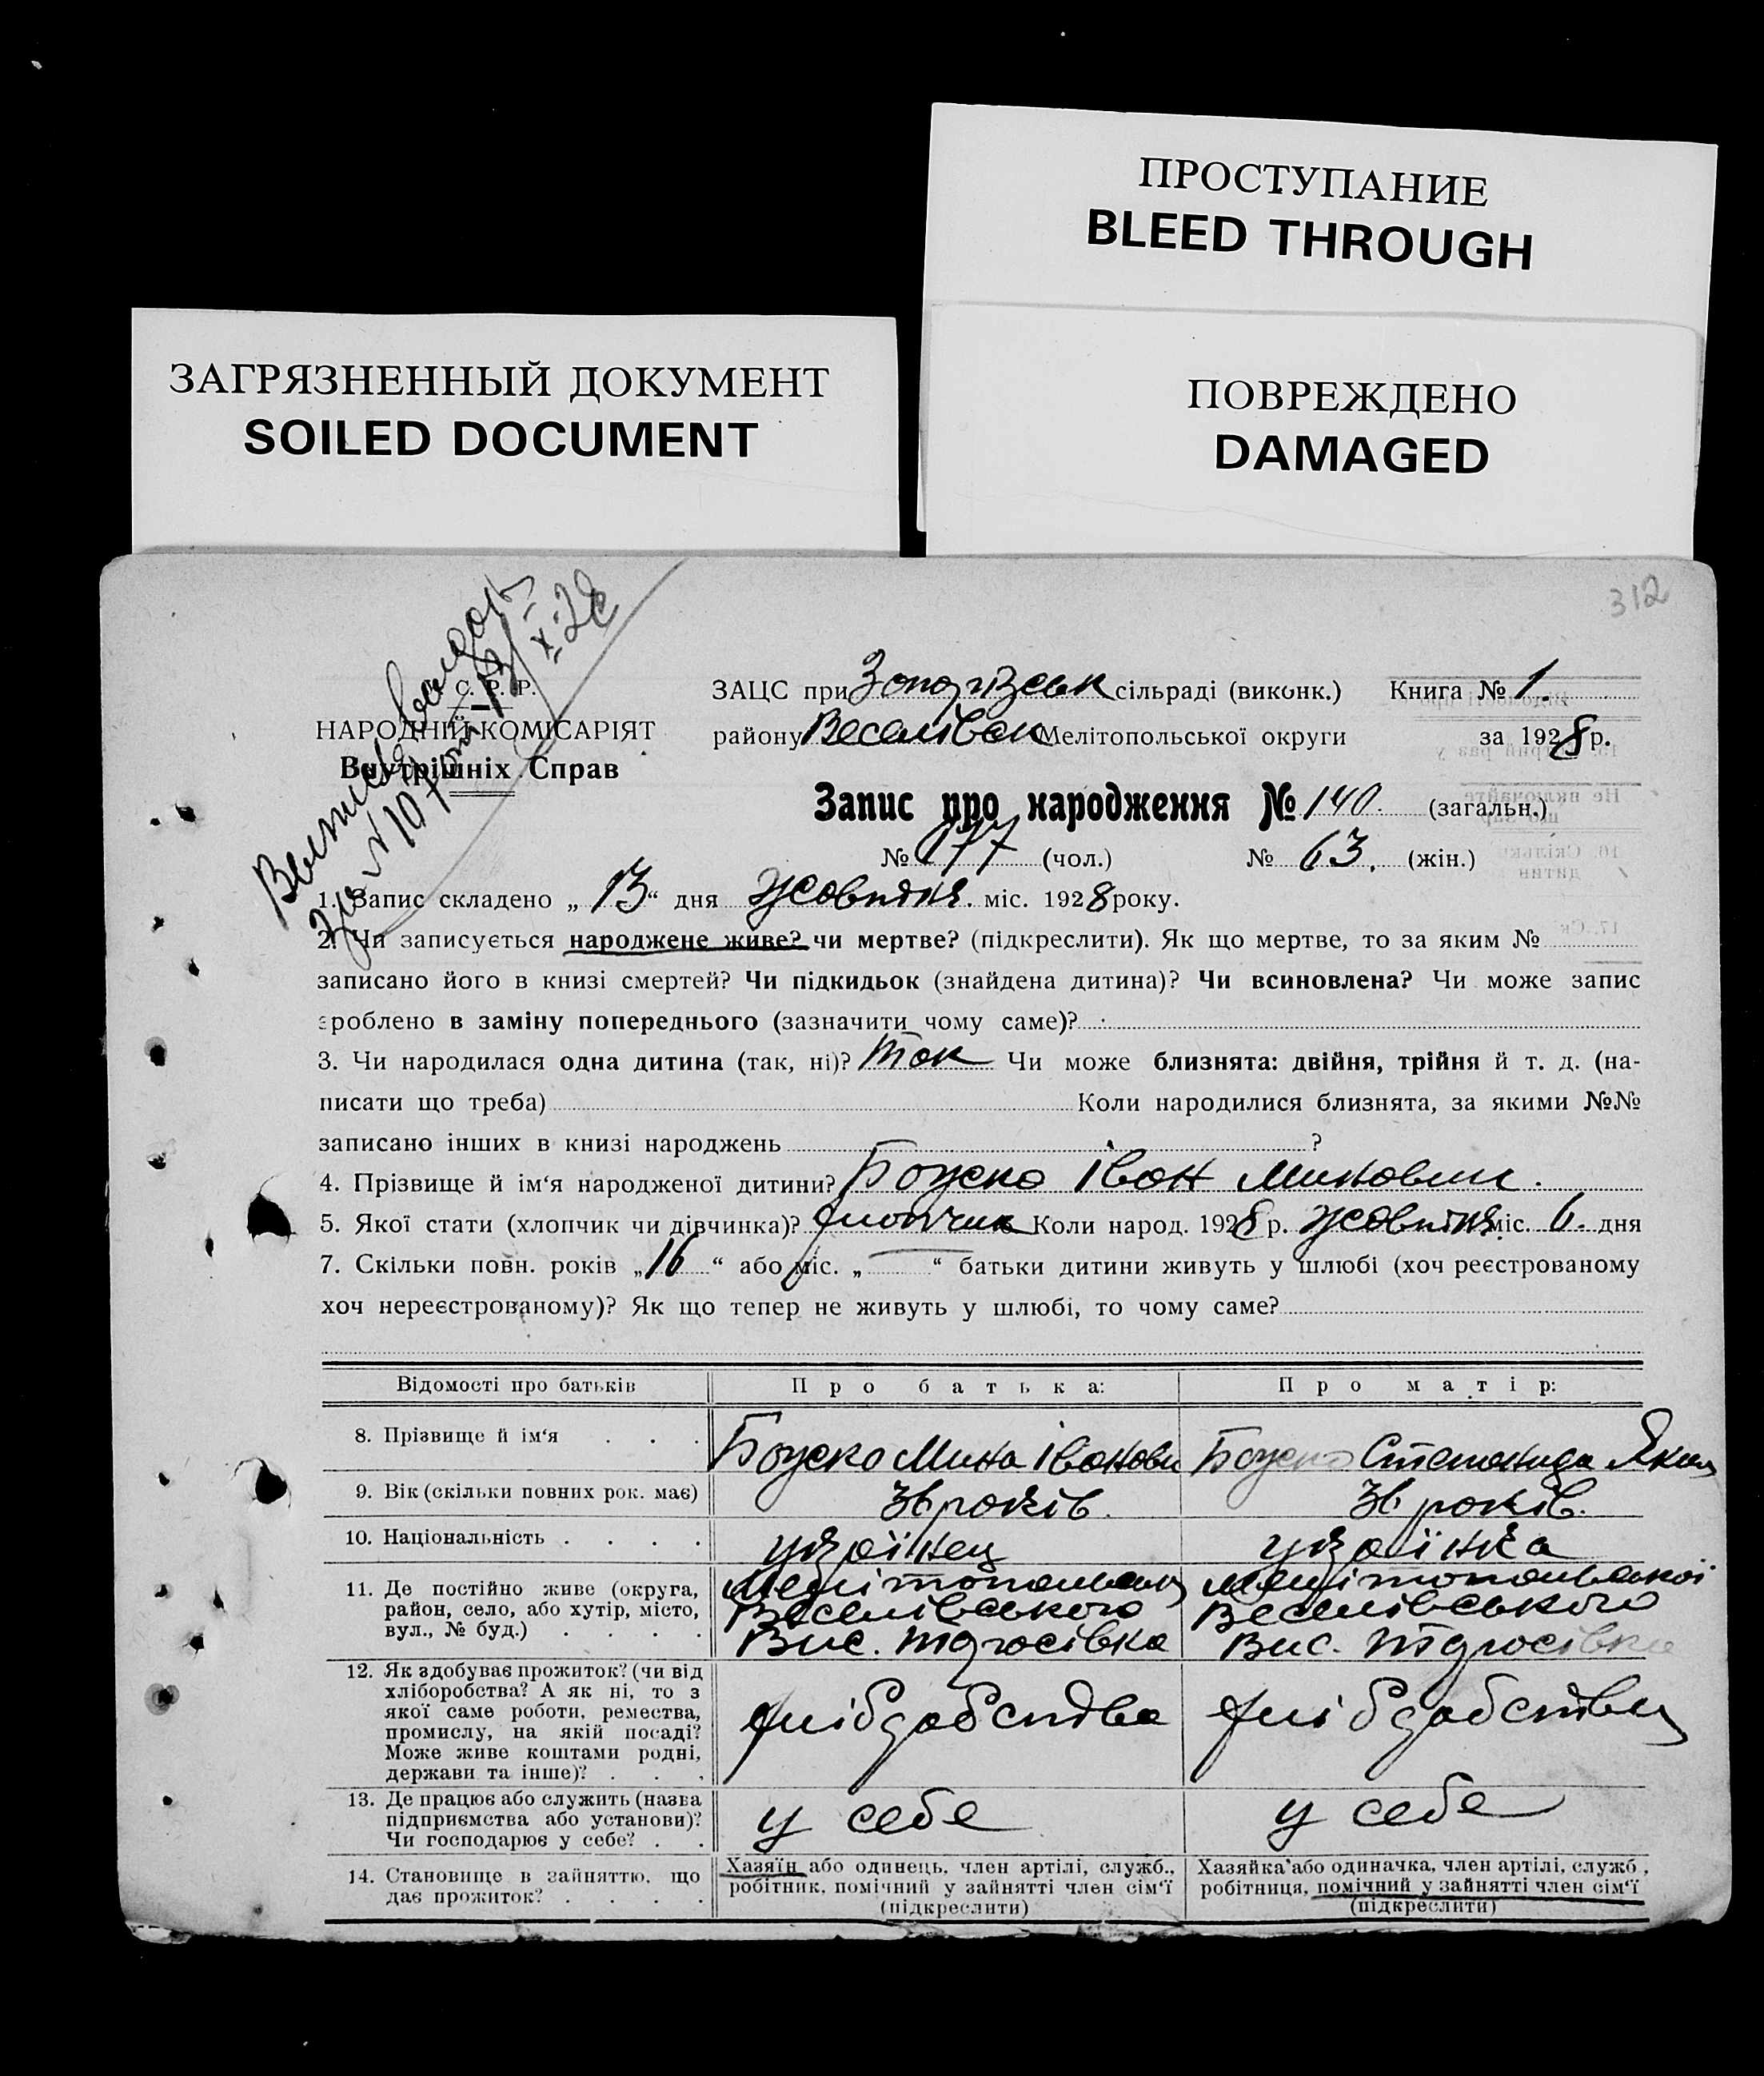 ПРОСТУПАНИЕ
BLEED THROUGH
ЗАГРЯЗНЕННЫЙ ДОКУМЕНТ
SOILED DOCUMENT
ПОВРЕЖДЕНО
DAMAGED
312
С. Р. Р.
НАРОДНІЙ КОМІСАРІЯТ
Внутрішніх Справ
ЗАЦС при сільраді (виконк.) Книга № 1.
району Веселівськ Мелітопольської округи за 1928 р.
Запис про народження № 140. (загальн.)
№ 77 (чол.) № 63. (жін.)
1. Запис складено „ 13 “ дня Жовтня. міс. 1928 року.
2. Чи записується народжене живе? чи мертве? (підкреслити). Як що мертве, то за яким №
записано його в книзі смертей? Чи підкидьок (знайдена дитина)? Чи всиновлена? Чи може запис
зроблено в заміну попереднього (зазначити чому саме)?
3. Чи народилася одна дитина (так, ні)? так Чи може близнята: двійня, трійня й т. д. (на-
писати що треба) Коли народилися близнята, за якими №№
записано інших в книзі народжень ?
4. Прізвище й ім‘я народженої дитини? Боуско Іван Минович.
5. Якої стати (хлопчик чи дівчинка)? хлопчик Коли народ. 1928 р. жовтня міс. 6. дня
7. Скільки повн. років „ 16 “ або міс. „ — “ батьки дитини живуть у шлюбі (хоч реєстрованому
хоч нереєстрованому)? Як що тепер не живуть у шлюбі, то чому саме?
Відомості про батьків Про батька: Про матір:
8. Прізвище й ім‘я Боуско Мина Іванови Боуско Степанида Яким
9. Вік (скільки повних рок. має) 36 років. 36 років.
10. Національність українец українка
11. Де постійно живе (округа, район, село, або хутір, місто, вул., № буд.) Мелітопольськ Мелітопольської
Веселівського Веселівського
Вис. Вис.
12. Як здобуває прожиток? (чи від хліборобства? А як ні, то з якої саме роботи, ремества, промислу, на якій посаді? Може живе коштами родні, держави та інше)? хліборобства хліборобства
13. Де працює або служить (назва підприємства або установи)? Чи господарює у себе? у себе у себе
14. Становище в зайняттю, що дає прожиток? Хазяїн або одинець, член артілі, служб., робітник, помічний у зайнятті член сім‘ї (підкреслити) Хазяйка або одиначка, член артілі, служб., робітниця, помічний у зайнятті член сім‘ї (підкреслити)